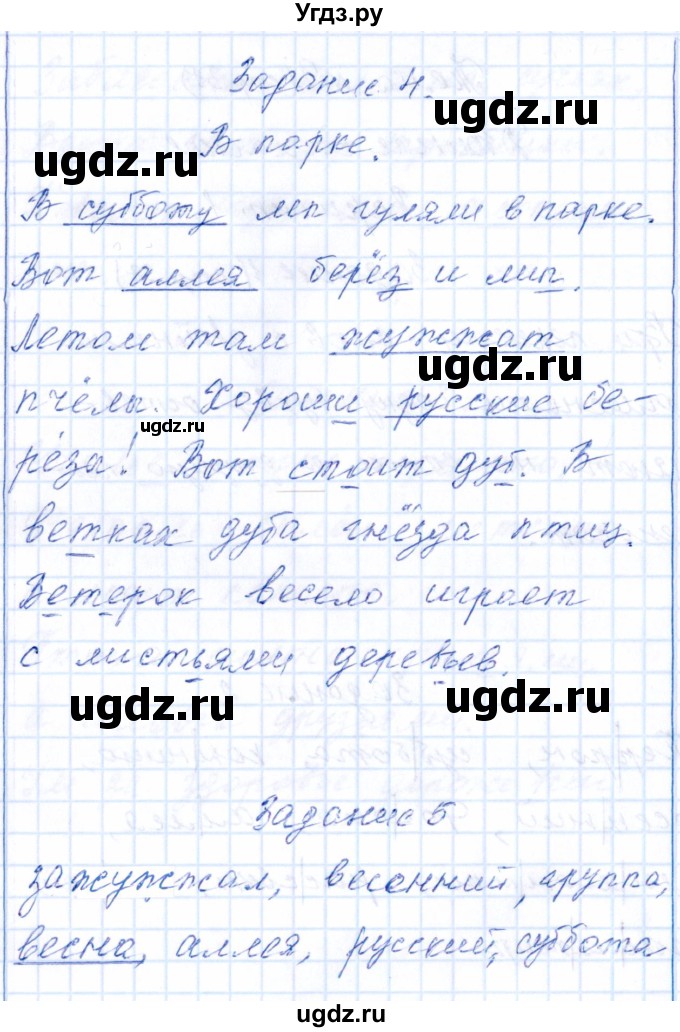 Угдз.ру
Задание 4.
ugdz.ru
В парке.
ugdz.ru
В субботу мы гуляли в парке.
Вот аллея берёз и лип.
Летом там жужжат
ugdz.ru
пчёлы. Хороши русские бе-
ugdz.ru
рёза! Вот стоит дуб. В
ветках дуба гнёзда птиц.
Ветерок весело играет
с листьями деревьев.
ugdz.ru
ugdz.ru
Задание 5
зажужжал, весенний, группа,
весна, аллея, русский, суббота
ugdz.ru